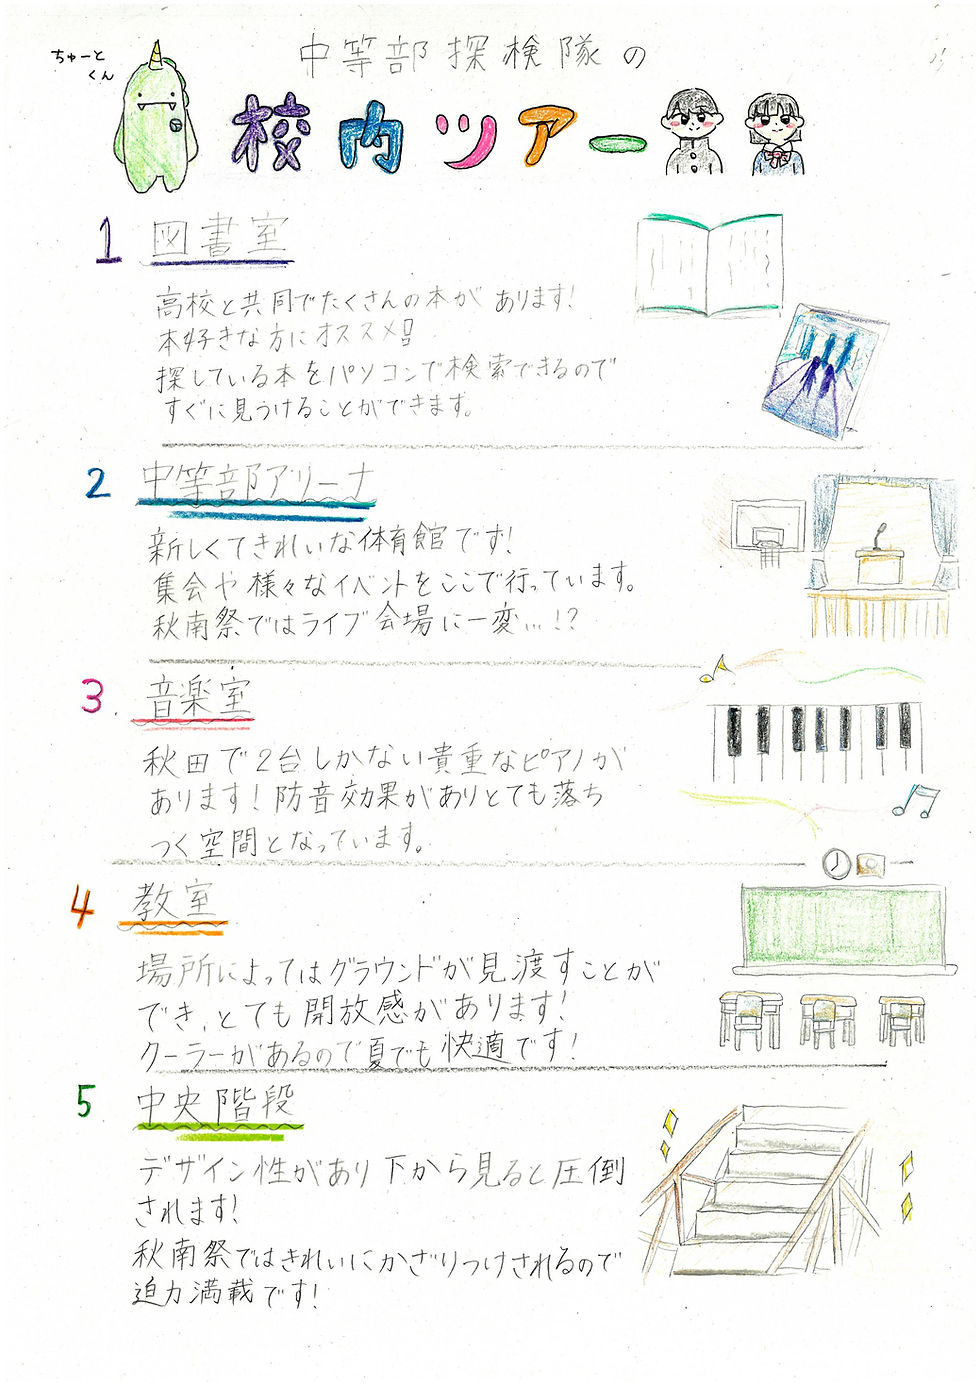 ちゅーと
くん
中等部探検隊の
校内ツアー
1 図書室
高校と共同でたくさんの本があります!
本好きな方にオススメ!!
探している本をパソコンで検索できるので
すぐに見うけることができます。
2 中等部アリーナ
新しくてきれいな体育館です!
集会や様々なイベントをここで行っています。
秋南祭ではライブ会場に一変…!?
3. 音楽室
秋田で2台しかない貴重なピアノが
あります!防音効果がありとても落ち
つく空間となっています。
4 教室
場所によってはグラウンドが見渡すことが
でき、とても開放感があります!
クーラーがあるので夏でも快適です!
5 中央階段
デザイン性があり下から見ると圧倒
されます!
秋南祭ではきれいにかざりつけされるので
迫力満載です!